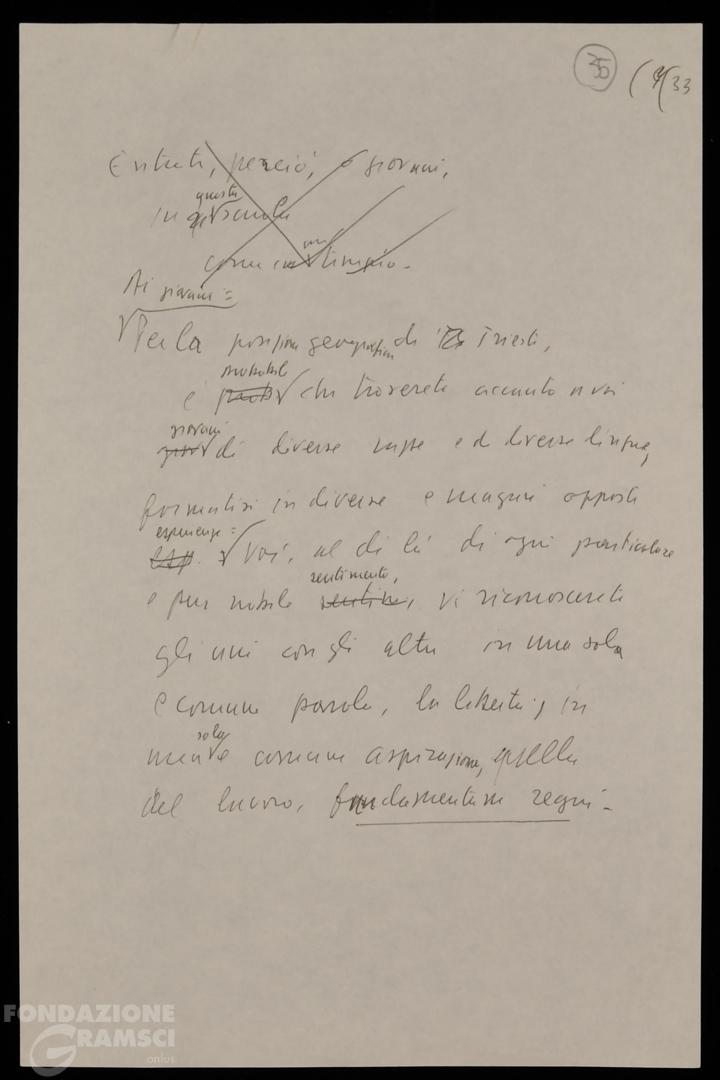 35 (4/33
Entrate, perciò, o giovani,
questa
in scuola
un
come in tempio.
Ai giovani =
Per la posizione geografica di Trieste,
probabile
è che troverete accanto a voi
giovani
di diverse razze e di diverse lingue,
formatisi in diverse e magari opposte
esperienze =
Esp. Voi, al di là di ogni particolare
sentimento,
e pur nobile sentim, vi riconoscerete
gli uni con gli altri in una sola
e comune parola, la libertà; in
sola
una e comune aspirazione, quella
del lavoro, fundamentum regni.
FONDAZIONE
GRAMSCI
onlus